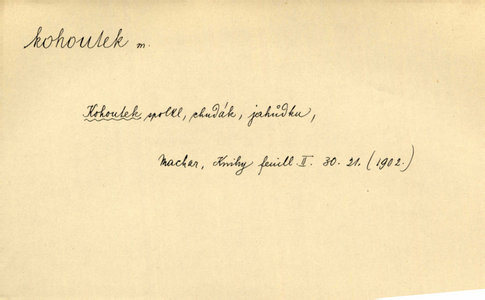 kohoutek m.
Kohoutek spolkl, chudák, jahůdku,
Machar, Knihy feuill II. 30. 21. (1902.)